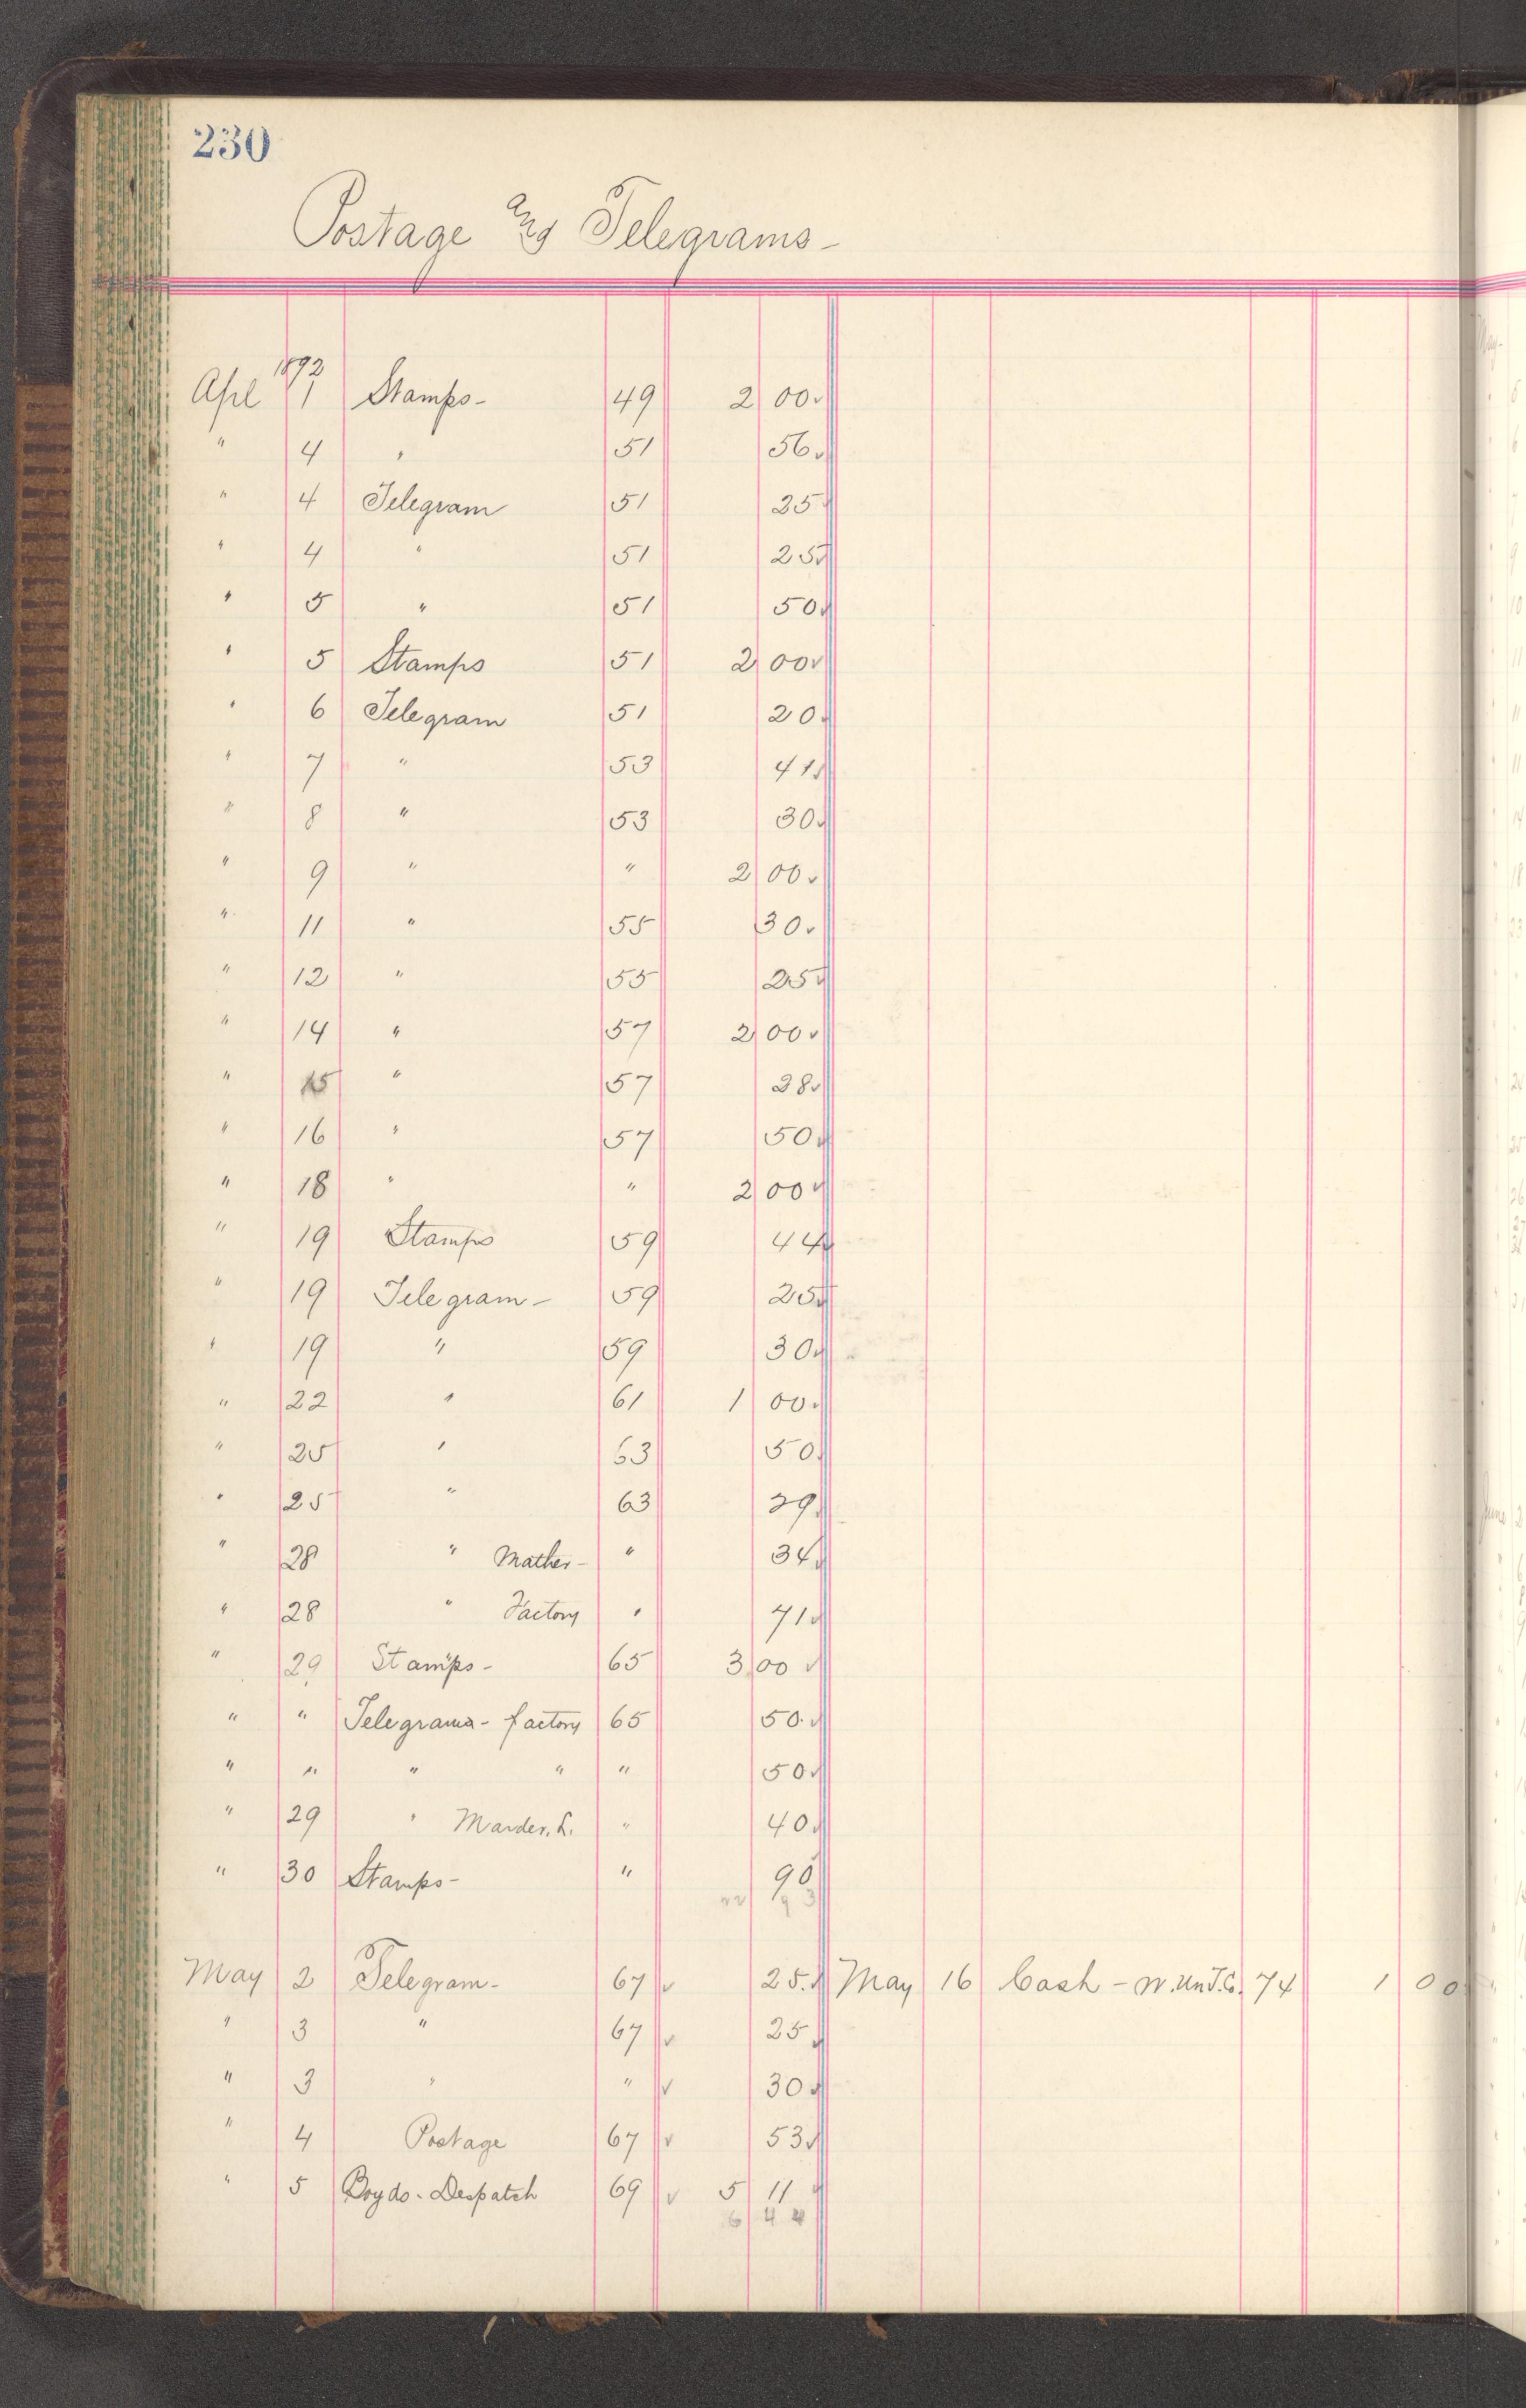 230
Postage and Telegrams -
1892
Apl 1 Stamps - 49 2 00
" 4 " 51 56
" 4 Telegram 51 25
" 4 " 51 25
" 5 " 51 50
" 5 Stamps 51 2 00
" 6 Telegram 51 20
" 7 " 53 41
" 8 " 53 30
" 9 " " 2 00
" 11 " 55 30
" 12 " 55 25
" 14 " 57 2 00
" 15 " 57 28
" 16 " 57 50
" 18 " " 2 00
" 19 Stamps 59 44
" 19 Telegram - 59 25
" 19 " 59 30
" 22 " 61 1 00
" 25 " 63 50
" 25 " 63 29
" 28 " Mather - " 34
" 28 " Factory " 71
" 29 Stamps - 65 3 00
" " Telegrams - factory 65 50
" " " " " 50
" 29 " Marder, L. " 40
" 30 Stamps - " 90
22 93
May 2 Telegram - 67 ✓ 25 May 16 Cash - W. Un T. Co. 74 1 00
" 3 " 67 ✓ 25
" 3 " " ✓ 30
" 4 Postage 67 ✓ 53
" 5 Boyds - Despatch 69 ✓ 5 11
6 44